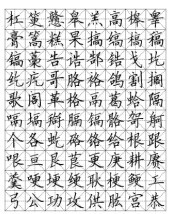 杠篡戆皋羔高槔睾
膏篙糕杲搞缟槁稿
镐藁告诰郜锆戈圪
纥疙哥胳袼鸽割搁
歌阁革格鬲葛蛤隔
嗝塥搿膈镉骼哿舸
个各虼硌铬给根跟
哏亘艮茛更庚耕赓
羹哽埂绠耿梗鲠工
弓公功攻供肱宫恭